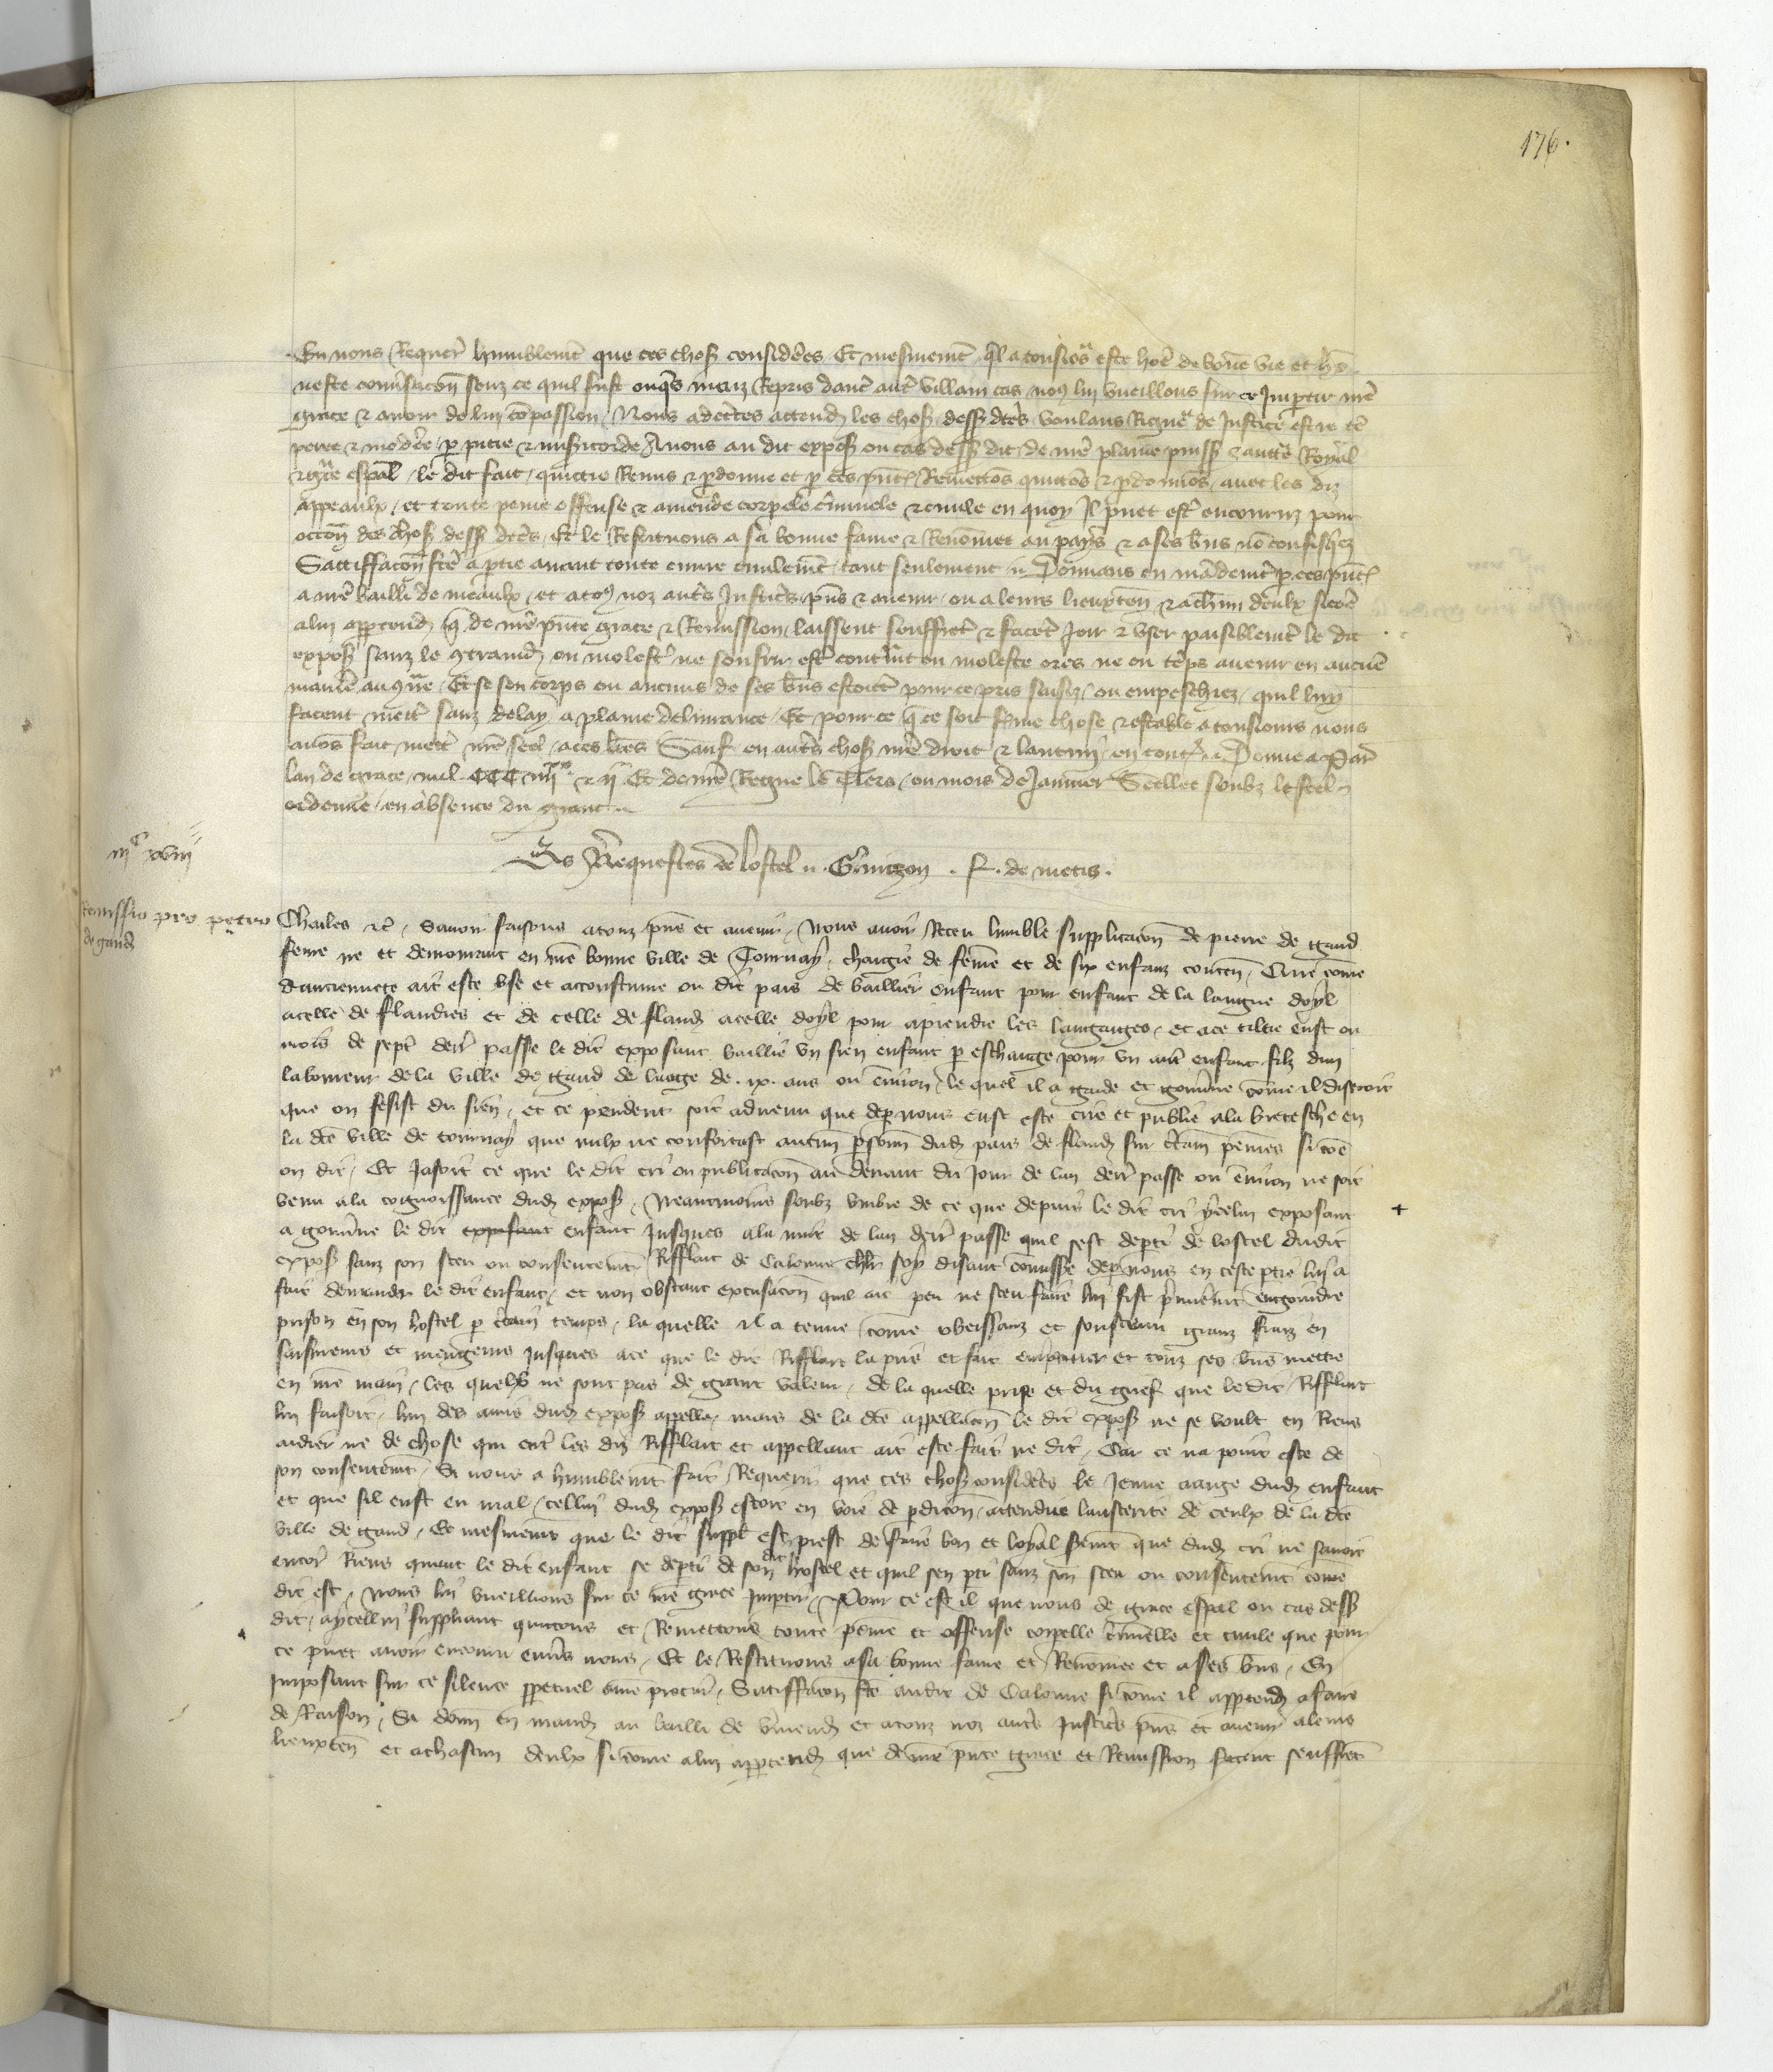 176.
En nous Requer̃ humblemẽt que ces choses considerées Et mesmemẽt ql a tousiors este hõe de bõne vie et hõ
neste conũsacõn senz ce quil fust onqs mais Repris dauc̃ aut̃ villain cas nous lui vueillons sur ce Impartir nr̃e
grace & auoir de lui cõpassion / Nous adecertes attendu les choses dess dc̃es voulans Rigueʳ de Justice estre tẽ
peree & moderee p pitie & misicorde Auons au dit exposant ou cas dess dit de nr̃e plaine puiss & auct̃e Royal
& gr̃ce esp̃al / le dit fait / quictie Remis & pdonne et p ces pñtes Remettõs quictõs & pdonnõs / auec les diz
appeaulx / et toute peine offense & amende corpele c̃minele & ciuile en quoy Il puet estr̃ encouruz pour
occõn des choses dess dc̃es / Et le Restituons a sa bonne fame & Renõmee au pays & a ses biẽs nõ confisquez
Satiffacõn fc̃e a ptie auant toute euure ciuilemẽt tant seulement Donnans en mãdemẽt p ces pñtes
a nr̃e bailli de meaulx / et a toz noz autr̃s Justiciers pñs & auenir / ou a leurs lieuxten̄ & a ch̃un deulx sicõe
a lui apptendra q de nr̃e pñte grace & Remission / laissent souffret̃ & facet̃ Joir & vser paisiblemẽt le dit
exposant sanz le contraindre ou molestr̃ ne souffrir estr̃ contraint ou moleste ores ne ou tẽps auenir en aucũe
maniẽe au contraire / Et se son corps ou aucuns de ses biẽs estoiẽt pour ce pris saisiz / ou empeschiez / quil luy
facent mectr̃ sanz delay / a plaine deliurance / Et pour ce q̃ ce soit ferme chose & estable a tousiours nous
auõs fait mectr̃ nr̃e seel / a ces lr̃es Sauf en autr̃s choses nr̃e droit & lautruy en toutes Donne a Paris
lan de grace / mil CCC iiijxx & ij Et de nr̃e Regne le Tiers / ou mois de Januier Seellee soubz le seel
ordenne / en absence du grant
Es Requestes de lostel Gontzon . F. de metis.
iijc xviij
Remissio pro petro
de gand
Charles &c̃ / Sauoir faisons a touz pñs et auenir / Nous auoir Receu humble supplicacõn de pierre de Gand
feure ne et demourant en nr̃e bonne ville de Tournay / chargie de femẽ et de six enfanz conten̄ / Que cõme
danciennete ait este vse et acoustume ou dit pais de baillier enfant pour enfant de la langue doyl
a celle de flandres et de celle de fland̃ a celle doyl pour aprendre les langaiges / et a ce tiltre eust ou
mois de sept̃ derr̃ passe le dit exposant baillie vn sien enfant p eschange pour vn autr̃ enfant filz dun
laboureur de la ville de Gand de laage de .ix. ans ou enuirõn / le quel il a garde et gouuerne cõme il disiroit
que on fesist du sien / et ce pendent soit aduenu que de p nous eust este crie et publie a la bretesche en
la dc̃e ville de tournay que nulx ne confortast aucun psonñ dud̃ pais de fland̃ sur c̃tain peines si cõe
on dit / Et Jasoit ce que le dit cri ou publicacõn au deuant du Jour de lan derr̃ passe ou enuiron ne soit
venu a la cognoissance dud̃ exposant / Neantmoins soubz vmbre de ce que depuis le dit cri ycellui exposant
a gouuerne le dit exposant enfant Jusques a la nuit de lan derr̃ passe quil sest depti de lostel dudit
exposant sanz son sceu ou consentemẽt Rifflart de Calonne chl̃r soy disant cõmisse de p nous en ceste ptie lui a
fait demander le dit enfant / et non obstant excusacõn quil ait peu ne sceu faire lui fist p̃miẽmẽt enioindre
prison en son hostel p c̃tain temps / la quelle il a tenue cõme obeissanz et soustenu granz fraiz en
faismens et mengeurs Jusques a ce que le dit Rifflart la pris et fait emprisonner et touz ses biẽs mettre
en nr̃e main / les quelx ne sont pas de grant valeur / de la quelle prise et du grief que le dit Rifflart
lui faisoit / lun des amis dud̃ exposant appella / mais de la dc̃e appellacõn le dit exposant ne se voult en Riens
aidier ne de chose qui entr̃ les diz Rifflart et appellant ait este fait ne dit / Car ce na point este de
son consentemẽt / Si nous a humblemẽt fait Requerir que ces choses considerées le Jenne aage dud̃ enfant
et que sil eust eu mal / cellui dud̃ exposant estoit en voie de pdicõn / attendue lausterite de ceulx de la dc̃e
ville de gand / Et mesmemẽt que le dit suppl̃ est prest de faire bon et loyal sermẽt que dud̃ cri ne sauoit
encor̃ Riens quant le dit enfant se depti de son dit hostel et quil sen pti sanz son sceu ou consentemẽt cõme
dit est / Nous lui vueillons sur ce nr̃e grace Impartir / Pour ce est il que nous de grace esp̃al ou cas dess
dit / a ycellui suppliant quictons et Remettons toute peine et offense corpelle c̃minelle et ciuile que pour
ce puet auoir encouru enuers nous / Et le Restituons a sa bonne fame et Renõmee et a ses biẽs / En
Imposant sur ce silence ppetuel a nr̃e procur̃ / Satiffacõn fc̃e audit de Calonne si cõme il apptendra a faire
de Raison / Si donñ en mand̃ au bailli de vermend̃ et a touz noz autr̃s Justiciers pñs et auenir a leurs
lieuxten̄ et a chascun deulx si cõme a lui apptendra que de nr̃e pñte grace et Remission facent seuffret̃